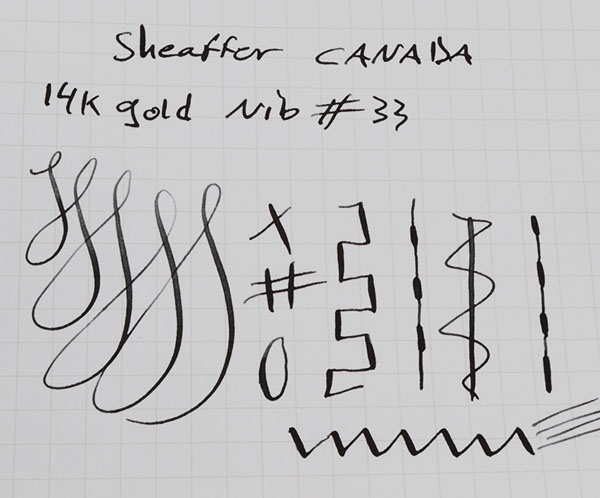 Sheaffer CANADA
14K gold Nib # 33
X
#
0